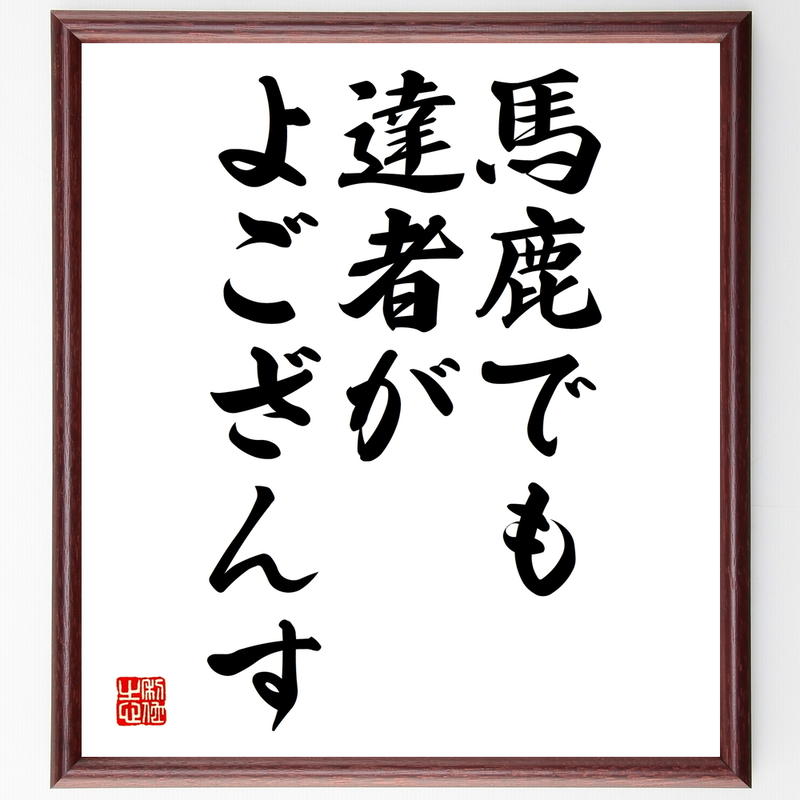 馬鹿でも
達者が
よござんす